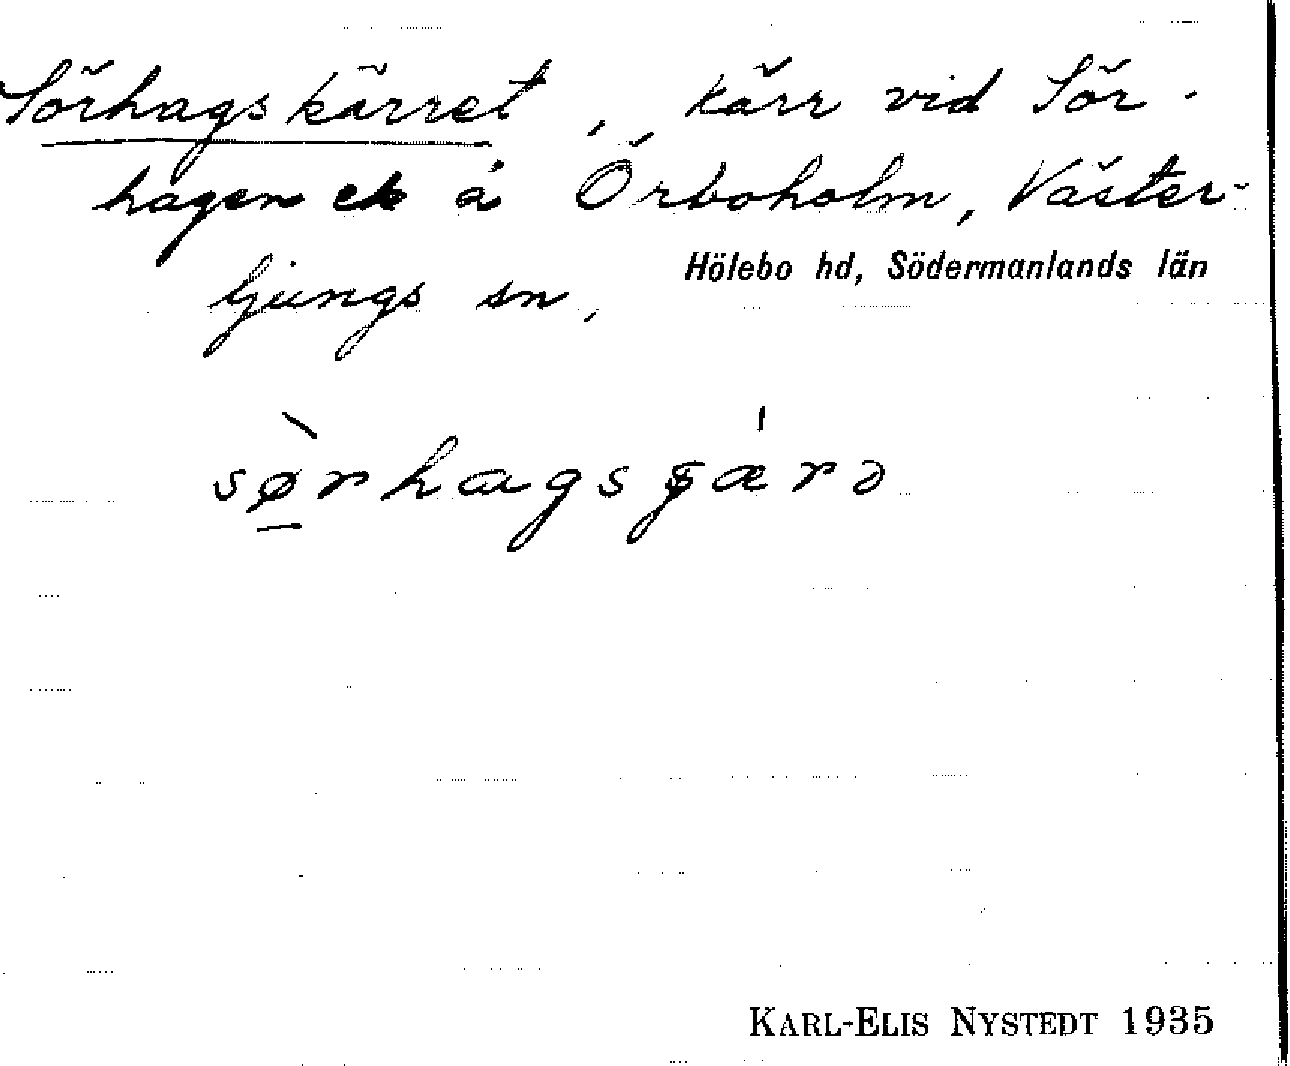 Sörhagskärret, kärr vid Sör-
hagen ek å Örboholm, Väster-
ljungs sn,
Hölebo hd, Södermanlands län
sø̲̀rhagsʂæ̍rə
KARL-ELIS NYSTEDT 1935